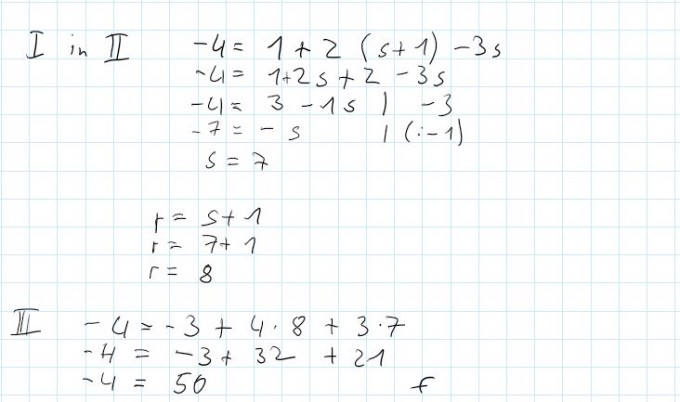 I in II -4 = 1 + 2 (s+1) - 3s
-4 = 1+2s + 2 - 3s
-4 = 3 - 1s | -3
-7 = - s | (:-1)
s = 7
r = s + 1
r = 7 + 1
r = 8
III -4 = -3 + 4·8 + 3·7
-4 = -3 + 32 + 21
-4 = 50 f